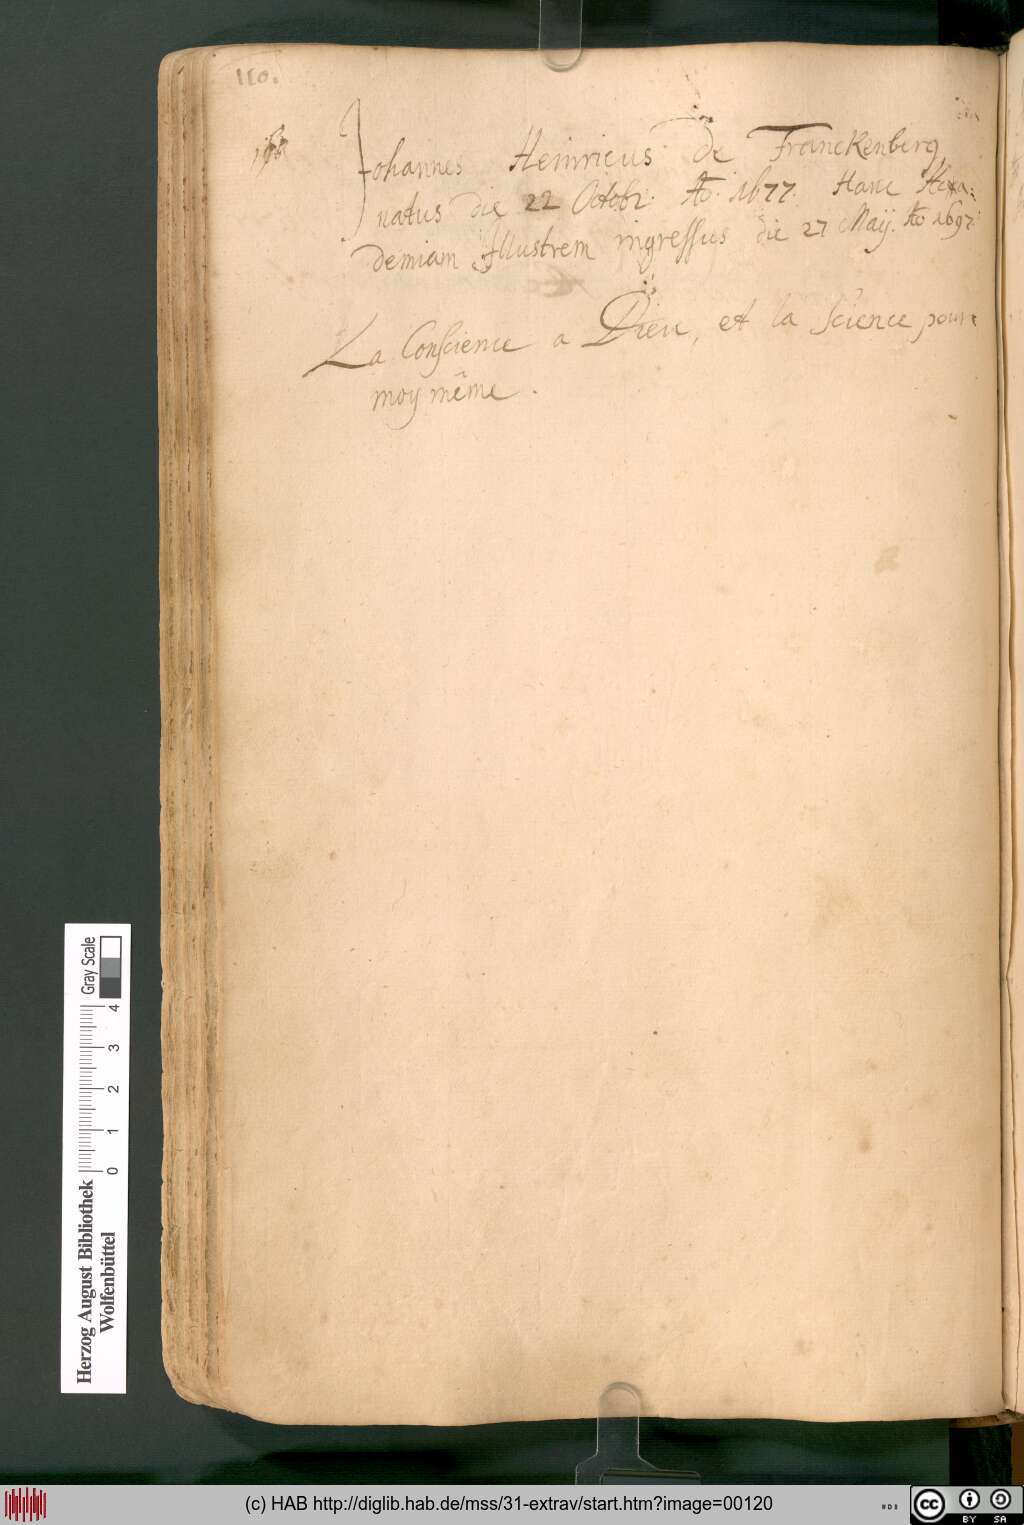 110.
Johannes Heinricus de Franckenberg
natus die 22 Octobr. Ao. 1677. Hanc Aca:
demiam Illustrem ingressus die 27 Maij. Ao 1697.
La Conscience a Dieu, et la Science pour
moy même.
Herzog August Bibliothek
Wolfenbüttel
0 1 2 3 4
Gray Scale
(c) HAB http://diglib.hab.de/mss/31-extrav/start.htm?image=00120
HAB
cc BY SA